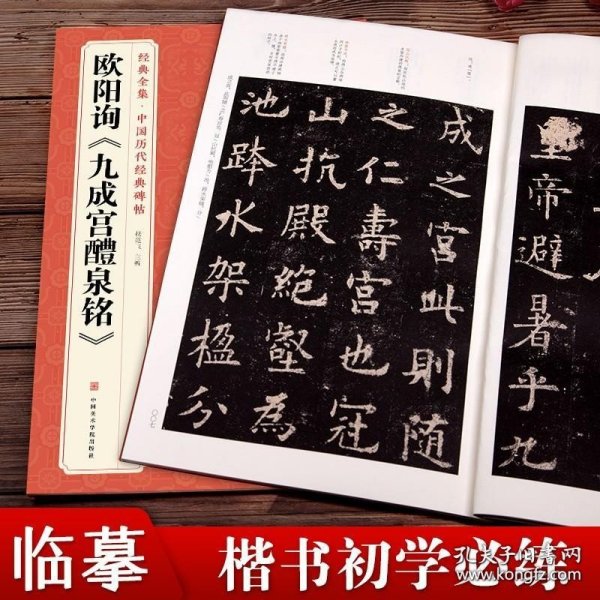 经典全集·中国历代经典碑帖
欧阳询《九成宫醴泉铭》
中国美术学院出版社
皇帝避暑乎九
成之宫此則随
之仁壽宫也冠
山抗殿絶壑為
池跨水架楹分
〇〇七
临摹
楷书初学必练
孔夫子旧书网
www.kongfz.com